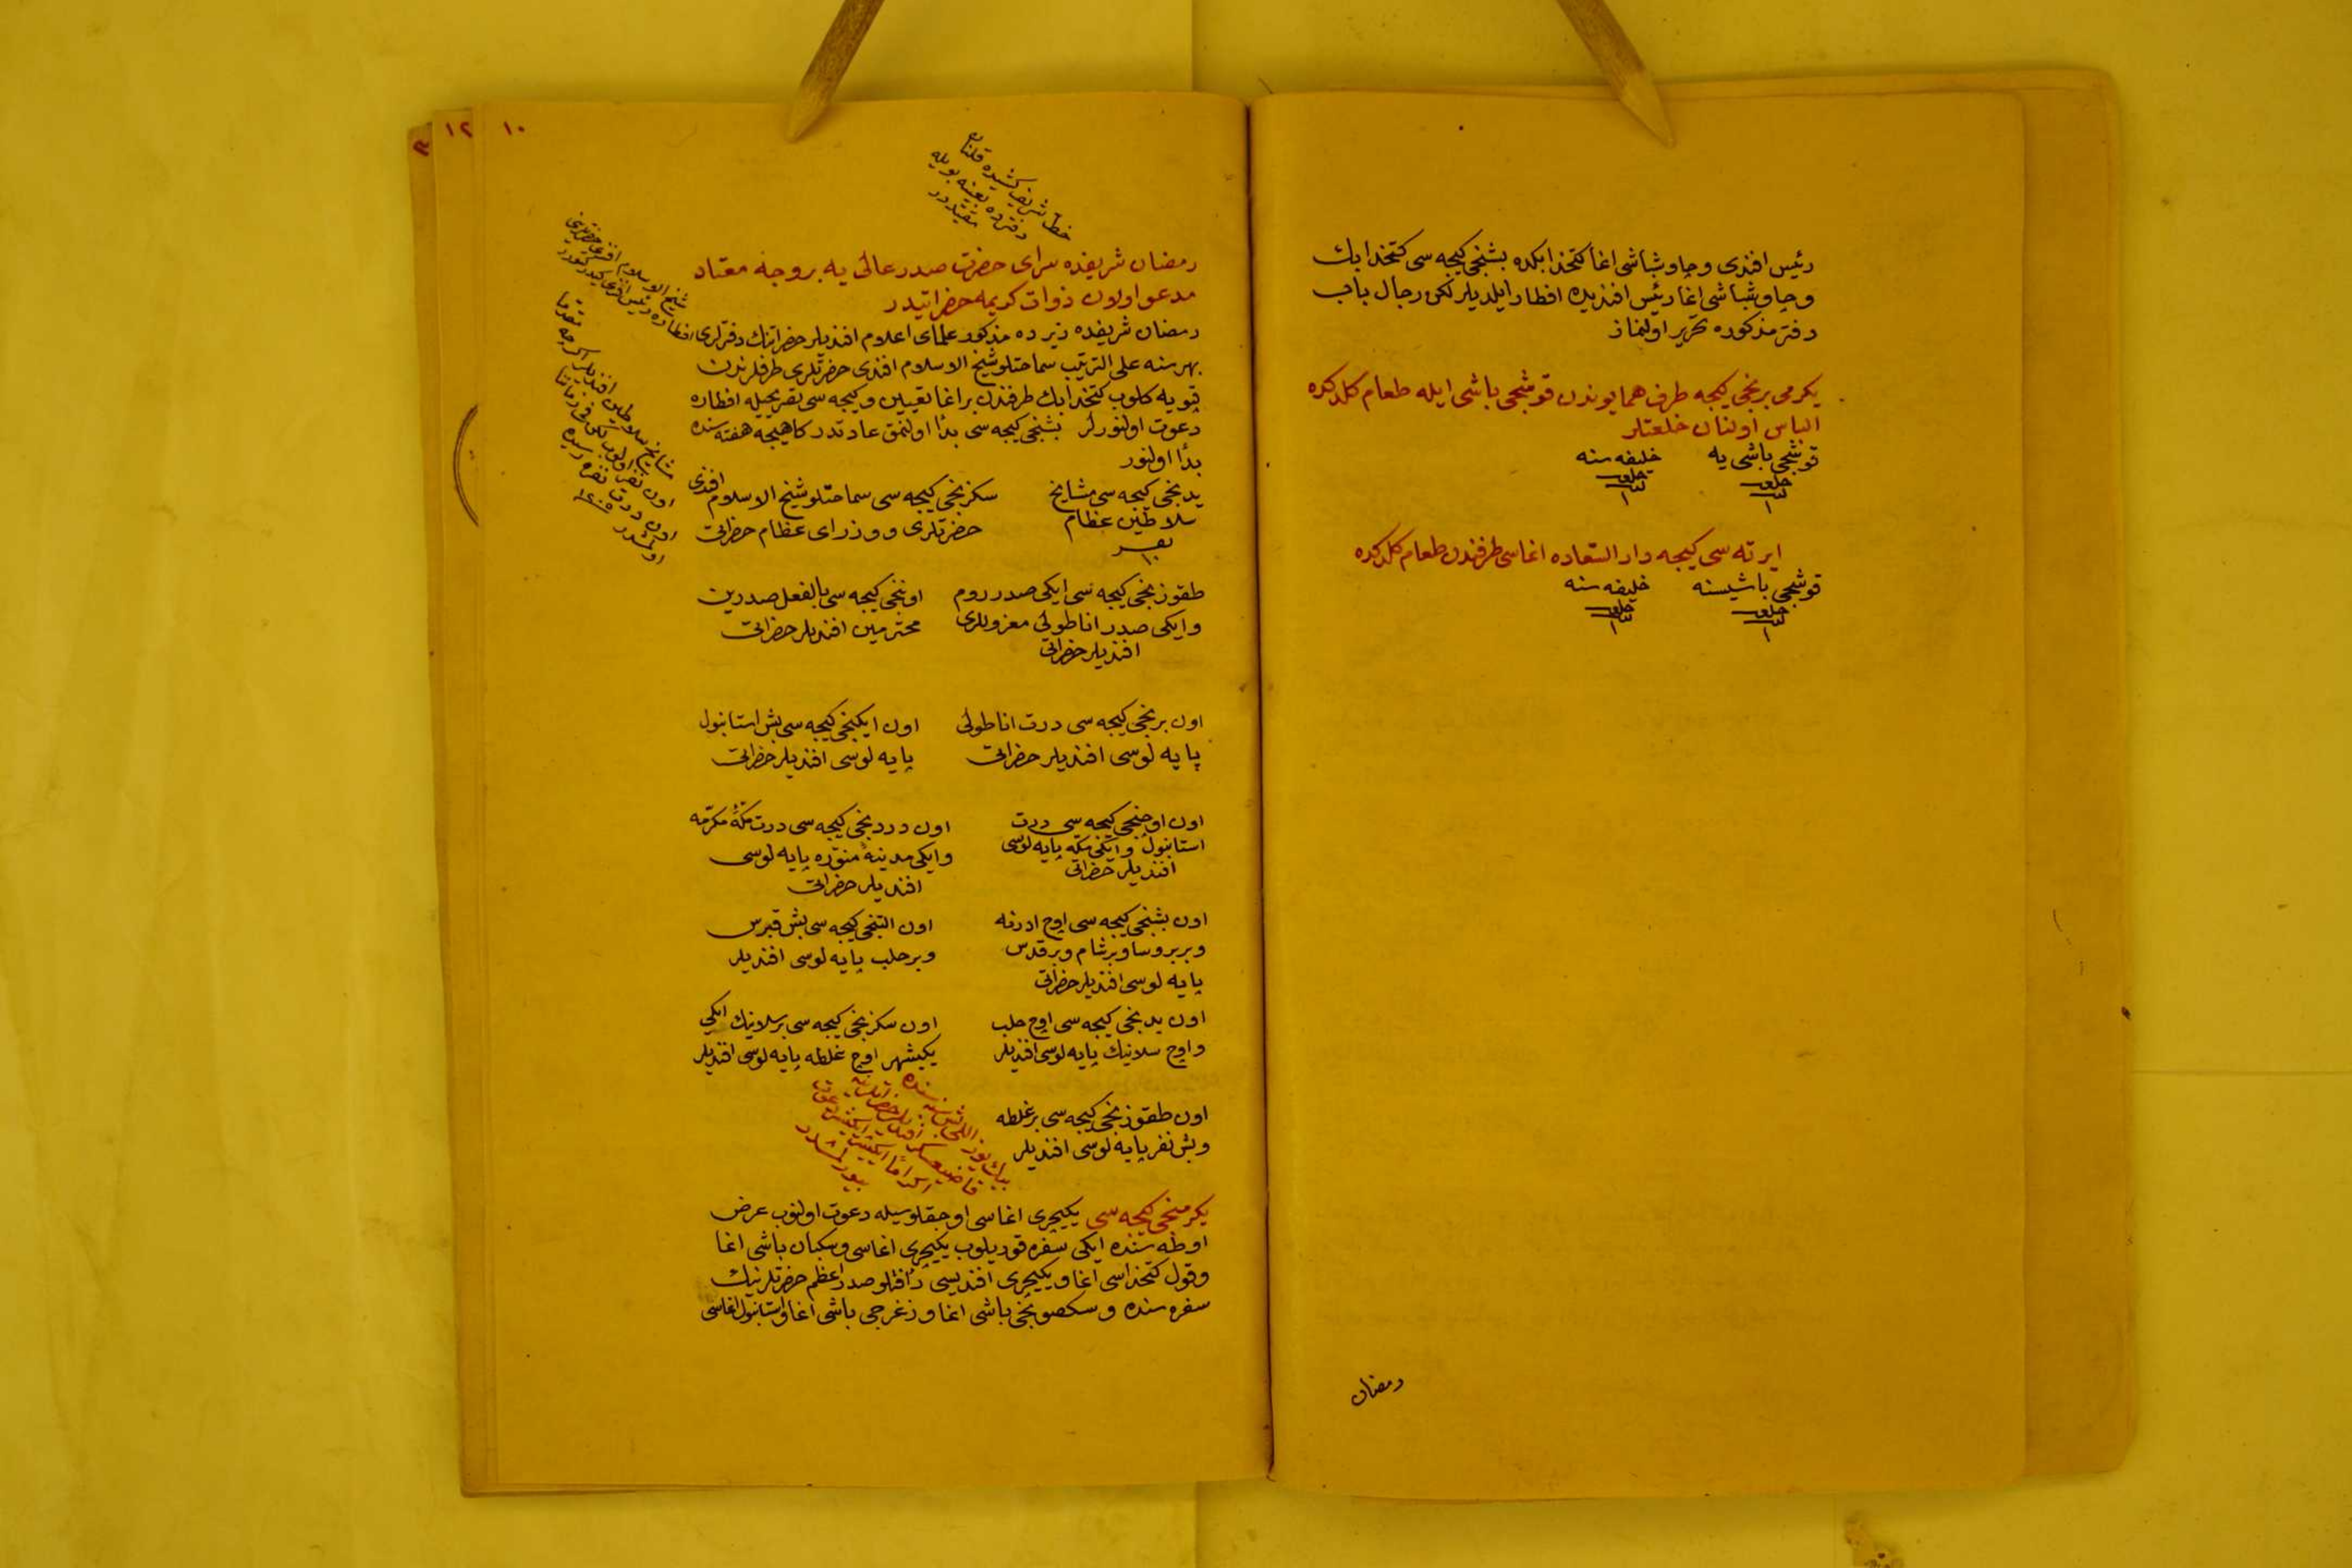 رئیس افندی و چاوشباشی اغا کتخدا بکده بشنجی کیجه سی کتخدا بك
و چاوشباشی اغا رئیس افندیده افطار ایلدیلر لکن رجال باب
دفتر مذکوره تحریر اولنماز
یکرمی برنجی کیجه طرف همایوندن قوشجی باشی ایله طعام کلدکده
الباس اولنان خلعتلر
قوشجی باشی یه خلیفه سنه
خلعت خلعت
١ ١
ایرته سی کیجه دار السعاده اغاسی طرفندن طعام کلدکده
قوشجی باشیسنه خلیفه سنه
خلعت خلعت
١ ١
رمضان
١٠ ١٢
خط شریف کشیده قلنان
دفترده بعینه بویله
مقیددر
رمضان شریفده سرای حضرت صدر عالی یه بر وجه معتاد
مدعو اولان ذوات کریمه حضراتیدر
رمضان شریفده زیرده مذکور علمای اعلام افندیلر حضراتنك دفترلری
بهر سنه علی الترتیب سماحتلو شیخ الاسلام افندی حضرتلری طرفلرندن
قپویه کلوب کتخدا بك طرفندن بر اغا تعیین و کیجه سی تقریجیله افطاره
دعوت اولنورلر بشنجی کیجه سی بدأ اولنمق عادتدر کاهیجه هفته سنده
بدأ اولنور
یدنجی کیجه سی مشایخ
سلاطین عظام
نفر
١٠
سکزنجی کیجه سی سماحتلو شیخ الاسلام افندی
حضرتلری و وزرای عظام حضراتی
طقوزنجی کیجه سی ایکی صدر روم
و ایکی صدر اناطولی معزوللری
افندیلر حضراتی
اوننجی کیجه سی بالفعل صدرین
محترمین افندیلر حضراتی
اون برنجی کیجه سی درت اناطولی
پایه لوسی افندیلر حضراتی
اون ایکنجی کیجه سی بش استانبول
پایه لوسی افندیلر حضراتی
اون اوچنجی کیجه سی درت
استانبول و ایکی مکه پایه لوسی
افندیلر حضراتی
اون دردنجی کیجه سی درت مکۀ مکرّمه
و ایکی مدینۀ منوّره پایه لوسی
افندیلر حضراتی
اون بشنجی کیجه سی اوچ ادرنه
و بر بروسا و بر شام و بر قدس
پایه لوسی افندیلر حضراتی
اون التنجی کیجه سی بش قبرس
و بر حلب پایه لوسی افندیلر
اون یدنجی کیجه سی اوچ حلب
و اوچ سلانیك پایه لوسی افندیلر
اون سکزنجی کیجه سی بر سلانیك ایکی
یکیشهر اوچ غلطه پایه لوسی افندیلر
اون طقوزنجی کیجه سی بر غلطه
و بش نفر پایه لوسی افندیلر
بیك یوز اللی بش سنه سنده
قاضیعسکر افندیلر حضراتنه
اکراما ایکیشر ایکیشر دعوت
بیورلمشدر
یکرمنجی کیجه سی یکیچری اغاسی اوجاقلوسیله دعوت اولنوب عرض
اوطه سنده ایکی سفره قوریلوب یکیچری اغاسی و سکبان باشی اغا
و قول کتخداسی اغا و یکیچری افندیسی رأفتلو صدر اعظم حضرتلرینك
سفره سنده و سکصونجی باشی اغا و زغرجی باشی اغا و استانبول اغاسی
شیخ الاسلام افندی حضرتلری
افطارده رئیس افندی
مشایخ سلاطین افندیلر اکرچه مقدما
اون نفر اولوب لکن فی زماننا
اون درت نفره رسیده
اولمشدر